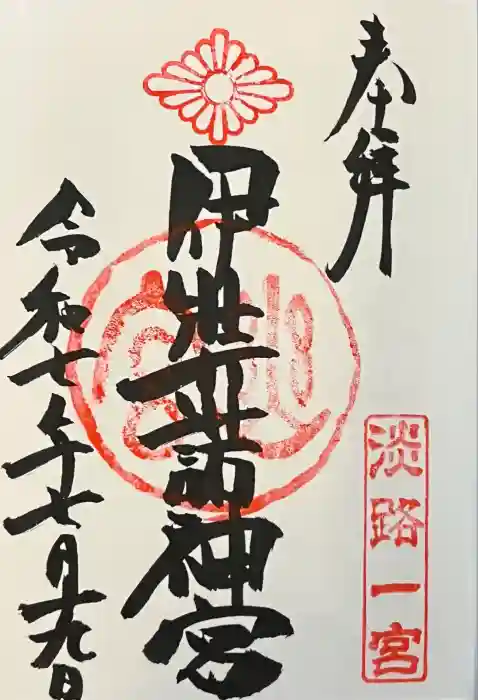 奉拝
伊弉諾神宮
令和七年十七月十九日
淡路一宮